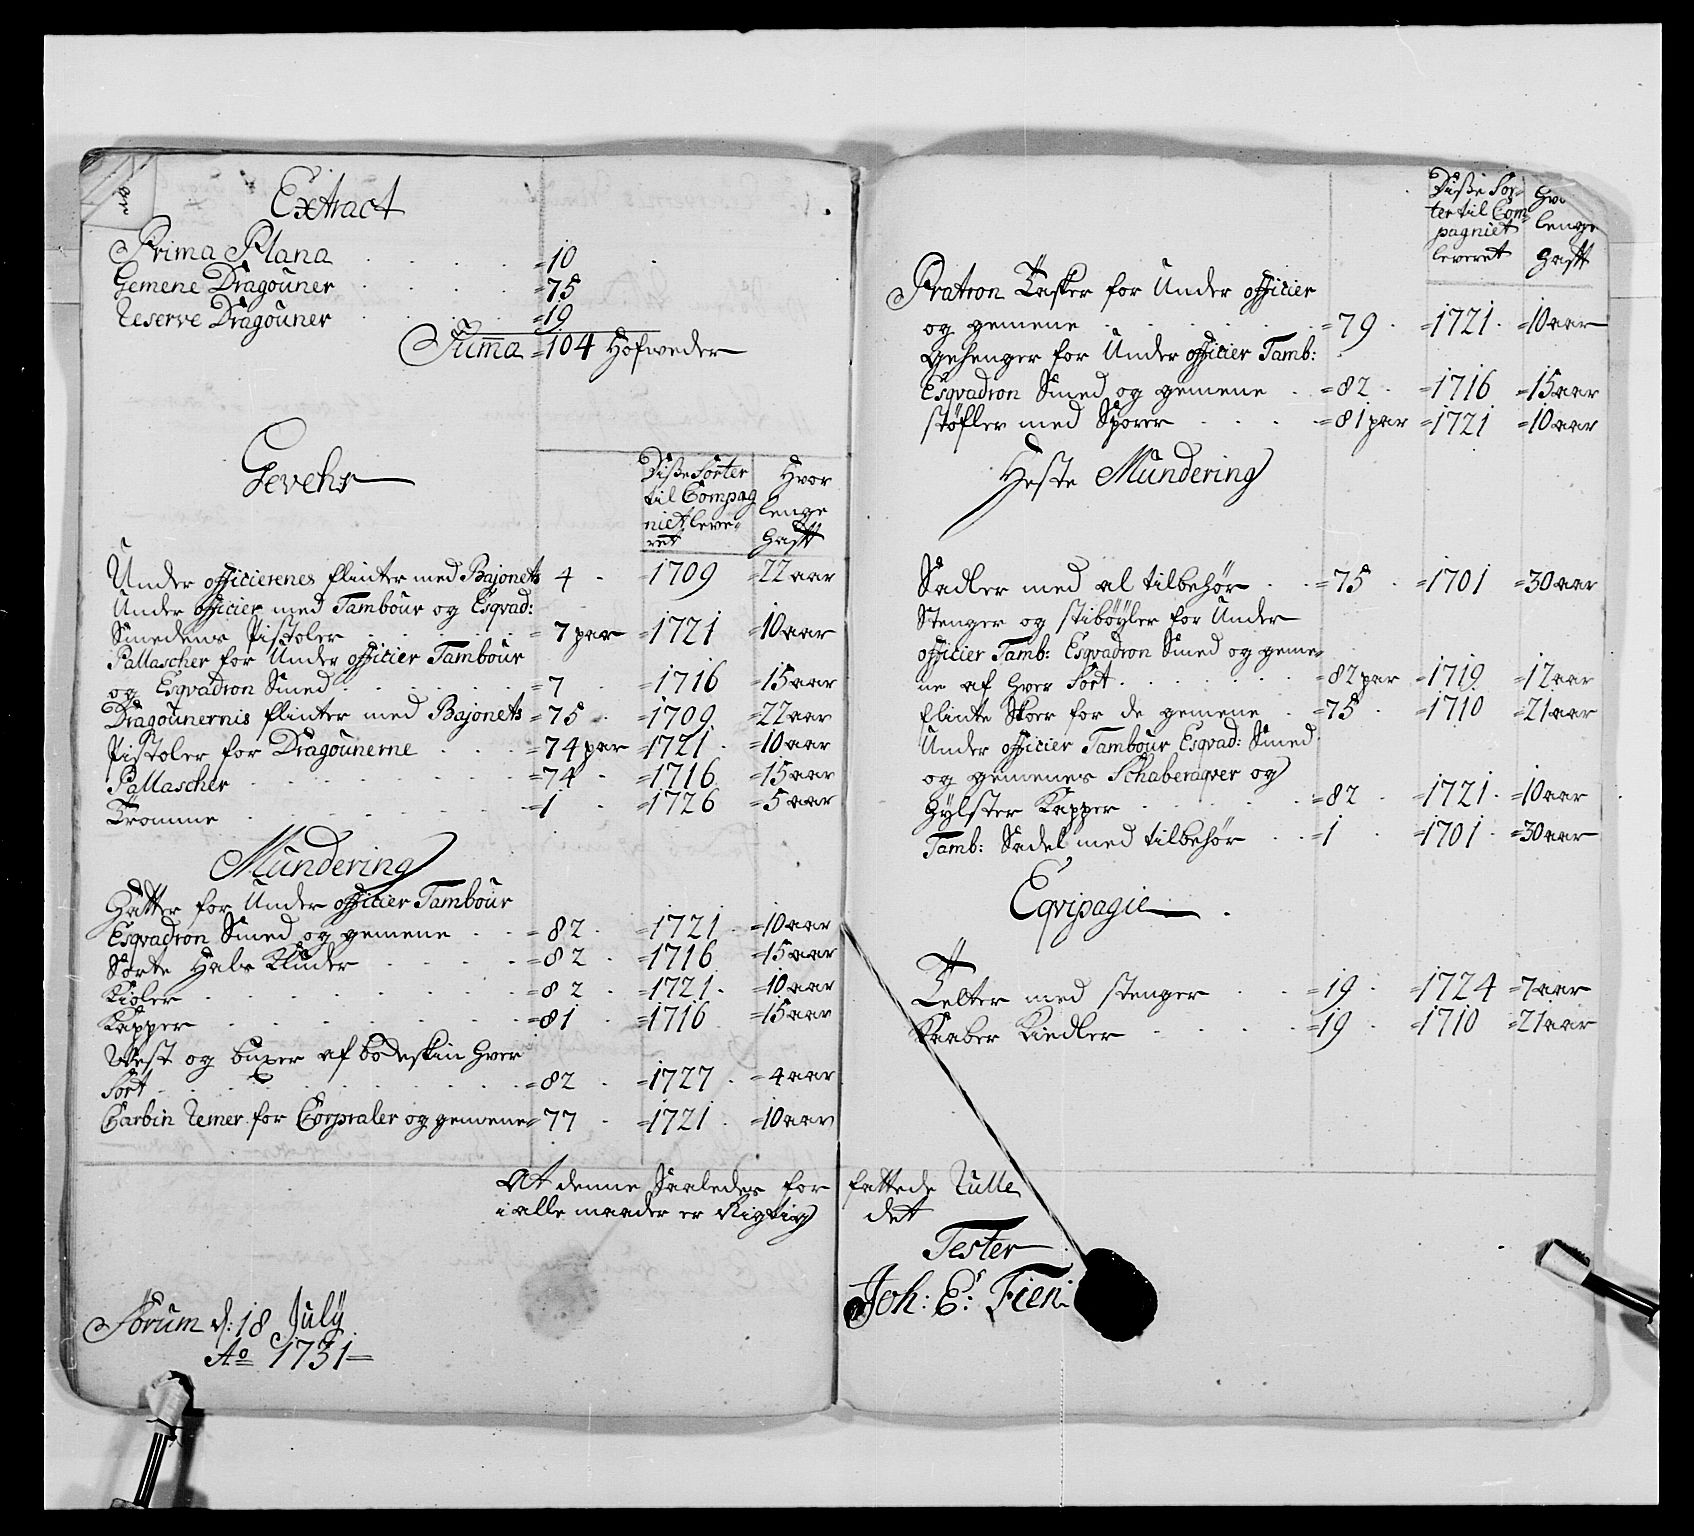 Extract
Prima Plana . . . . =10
Gemene Dragouner . . . =75
Reserve Dragouner . . . =19
Suma =104 Hofweder
Gevehr
Disse Sorter
til Compag
niet leve-
ret
Hvor
lenge
hafft
Under officierenes flinter med Bajonets 4 . =1709 =22 aar
Under officier med Tambour og Esqvad:
Smedens Pistoler . . . . =7 par =1721 =10 aar
Pallascher for Under officier Tambour
og Esqvadron Smed . . . . =7 =1716 =15 aar
Dragounernis flinter med Bajonets =75 . =1709 =22 aar
Pistoler for Dragounerne . . . =74 par =1721 . =10 aar
Pallascher . . . . =74 . =1716 =15 aar
Tromme . . . . =1 . =1726 =5 aar
Mundering
Hatter for Under officier Tambour
Esqvadron Smed og gemene . . =82 . =1721 . =10 aar
Sorte Hals Kluder . . . . =82 . =1716 =15 aar
Kioler . . . . =82 . =1721 . =10 aar
Kapper . . . . =81 . =1716 =15 aar
West og buxer af bodeskin hver
Sort . . . . =82 . =1727 . =4 aar
Carbin Remer for Corpraler og gemene =77 . =1721 . =10 aar
At denne Saaledes for
i alle maader er Rigtig
Sorum d: 18 July
Ao 1731
Disse Sor-
ter til Com-
pagniet
leveret
lenge
hafft
Pratron Tasker for Under officier
og gemene . . . . =79 . =1721 . =10 aar
Gehenger for Under officier Tamb:
Esqvadron Smed og gemene . =82 . =1716 =15 aar
støfler med Sporer . . . =81 par =1721 =10 aar
Heste Mundering
Sadler med al tilbehør . . =75 . =1701 =30 aar
Stenger og stibøyler for Under
officier Tamb: Esqvadron Smed og geme-
ne af hver Sort . . . . =82 par =1719 =12 aar
flinte Skoer for de gemene . =75 . =1710 =21 aar
Under officier Tambour Esqvad: Smed
og gemenes Schaberaqver og
Hylster Kapper . . . . =82 . =1721 . =10 aar
Tamb: Sadel med tilbehør . . =1 . =1701 . =30 aar
Eqvipagie
Telter med stenger . . =19 . =1724 =7 aar
Kaaber Kiedler . . . . =19 . =1710 =21 aar
fattede Rulle
det
Tester
Joh: E: Fien